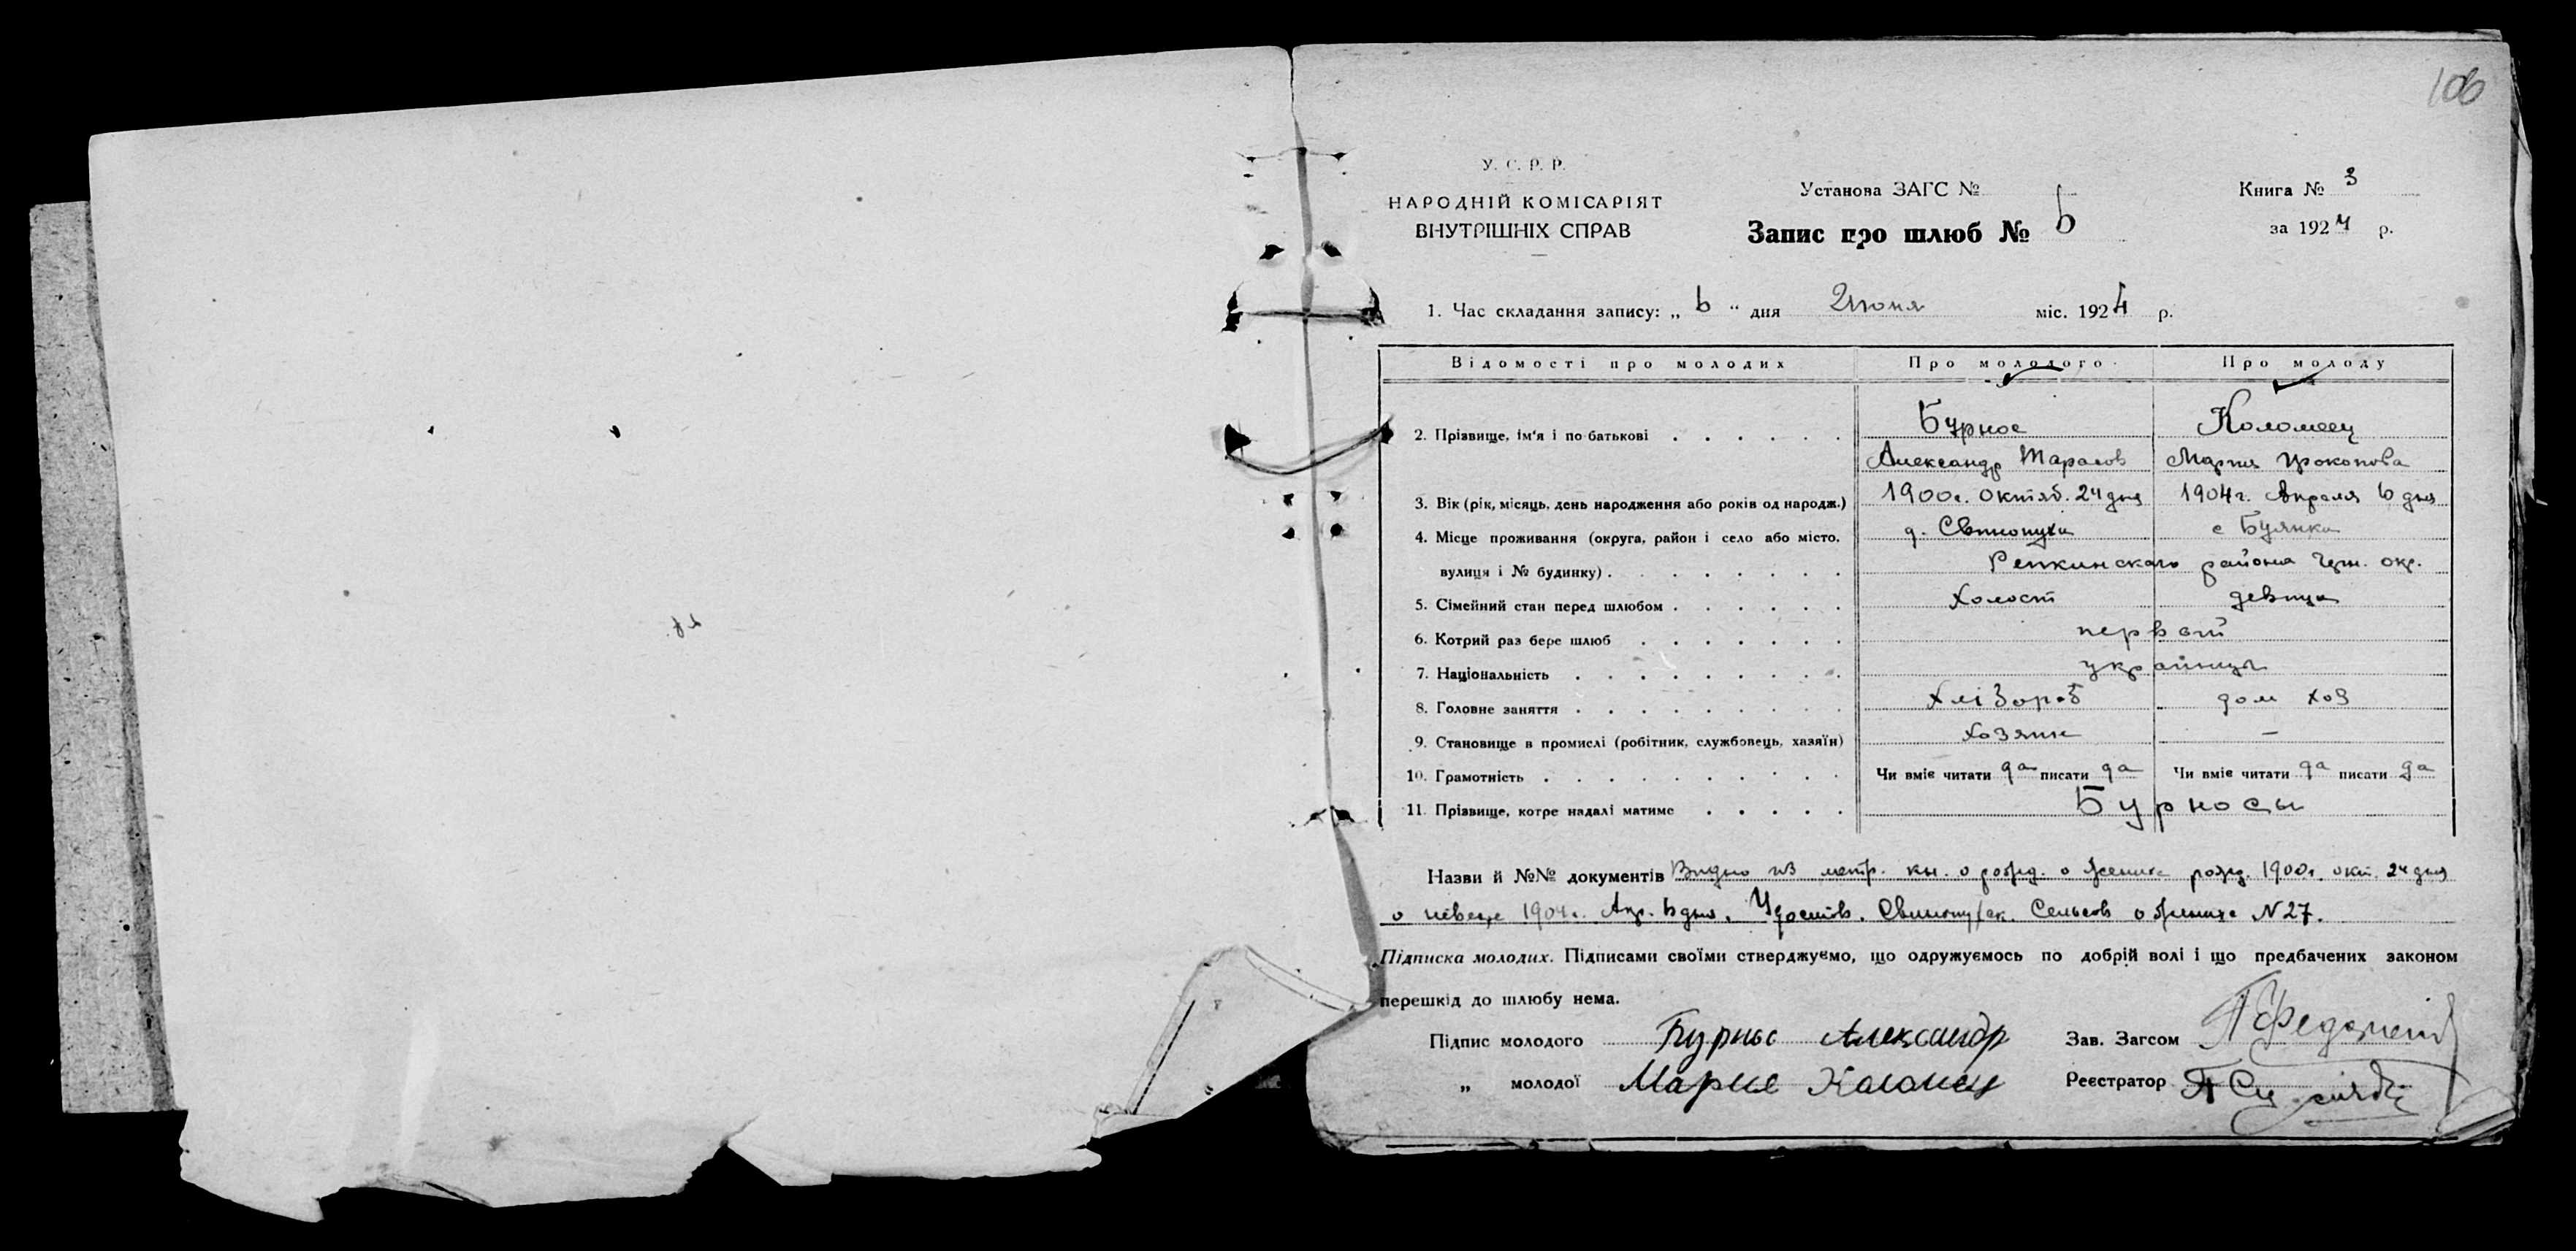 106
У. С. Р. Р.
НАРОДНІЙ КОМІСАРІЯТ
ВНУТРІШНІХ СПРАВ
Установа ЗАГС №
Запис про шлюб № 6
Книга № 3
за 1924 р.
1. Час складання запису: „ 6 “ дня Июня міс. 1924 р.
Відомості про молодих Про молодого Про молоду
2. Прізвище, ім'я і по батькові Бурнос Коломеец
Александр Тарасов Мария Прокопова
3. Вік (рік, місяць, день народження або років од народж.) 1900г. Октяб. 24 дня 1904г. Апреля 6 дня
4. Місце проживання (округа, район і село або місто, д. Свинопухи с Буянки
вулиця і № будинку) Репкинского района Черн. окр.
5. Сімейний стан перед шлюбом холост девица
6. Котрий раз бере шлюб первый
7. Національність украйнцы
8. Головне заняття Хлібороб дом хоз
9. Становище в промислі (робітник, службовець, хазяїн) Хозяин —
10. Грамотність Чи вміє читати да писати да Чи вміє читати да писати да
11. Прізвище, котре надалі матиме Бурносы
Назви й №№ документів Видно из метр. кн. о рожд. о женихе рожд. 1900г. окт. 24 дня
о невесте 1904г. Апр. 6 дня. Удостов. Свинопухск. Сельсов о женихе N 27.
Підписка молодих. Підписами своїми стверджуємо, що одружуємось по добрій волі і що предбачених законом
перешкід до шлюбу нема.
Підпис молодого Бурнос Александр Зав. Загсом
„ молодої Мария Коломец Реєстратор